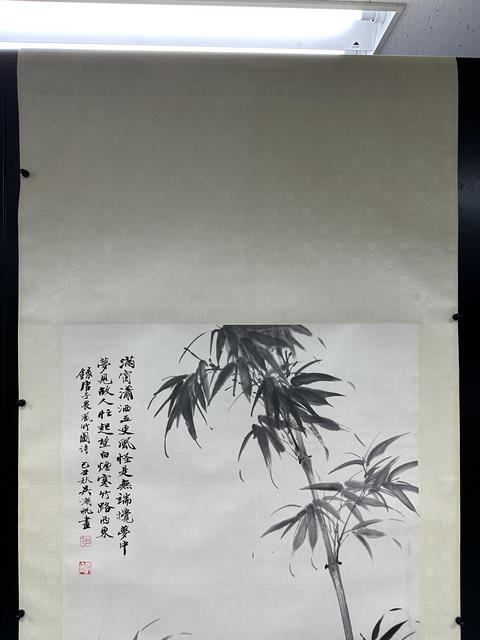 滿窗瀟洒五更風怪是無端攪夢中
夢見故人忙起望白煙寒竹路西東
錄唐子畏風竹圖詩 己丑秋吳湖帆畫